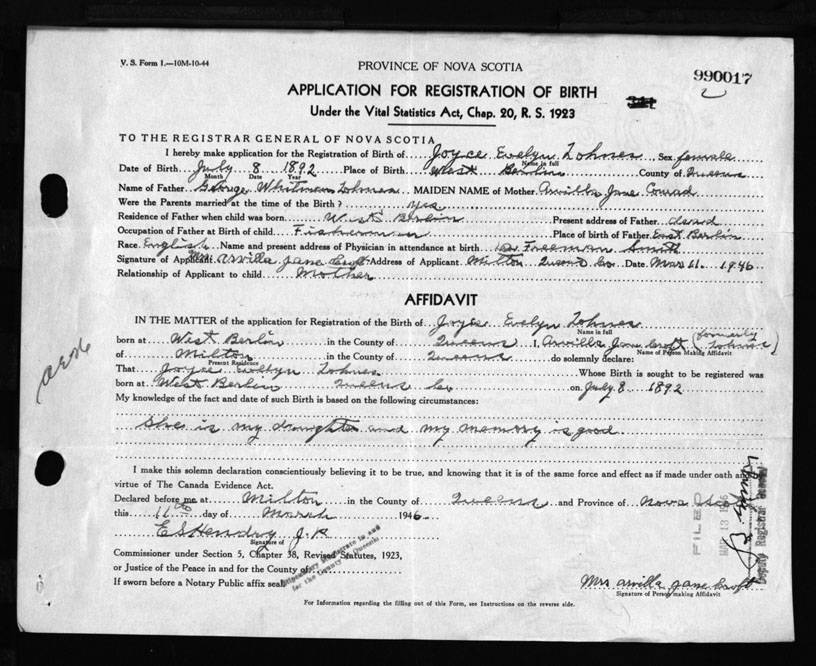 V. S. Form 1.—10M-10-44
PROVINCE OF NOVA SCOTIA
990017
APPLICATION FOR REGISTRATION OF BIRTH
Under the Vital Statistics Act, Chap. 20, R. S. 1923
TO THE REGISTRAR GENERAL OF NOVA SCOTIA
I hereby make application for the Registration of Birth of Joyce Evelyn Zohnes, Sex female
Name in full
Date of Birth July 8 1892 Place of Birth West Berlin County of Queens
Month Date Year
Name of Father George Whitman Zohnes MAIDEN NAME of Mother Arvilla Jane Conrad
Were the Parents married at the time of the Birth ? yes
Residence of Father when child was born West Berlin Present address of Father dead
Occupation of Father at Birth of child Fisherman Place of birth of Father East Berlin
Race English Name and present address of Physician in attendance at birth Dr Freeman Smith
Signature of Applicant Mrs Arvilla Jane Croft Address of Applicant Milton Queens Co Date Mar 11. 1946
Relationship of Applicant to child Mother
AFFIDAVIT
IN THE MATTER of the application for Registration of the Birth of Joyce Evelyn Zohnes
Name in full
born at West Berlin in the County of Queens I, Arvilla Jane Croft (formerly Zohnes)
of Milton in the County of Queens do solemnly declare:
Present Residence Name of Person Making Affidavit
That Joyce Evelyn Zohnes Whose Birth is sought to be registered was
born at West Berlin Queens Co on July 8 1892
My knowledge of the fact and date of such Birth is based on the following circumstances:
She is my daughter and my memory is good.
I make this solemn declaration conscientiously believing it to be true, and knowing that it is of the same force and effect as if made under oath and
virtue of The Canada Evidence Act.
Declared before me at Milton in the County of Queens and Province of Nova
this 11th day of March 1946
E S Hendry J.P.
Signature of
Commissioner under Section 5, Chapter 38, Revised Statutes, 1923,
or Justice of the Peace in and for the County of
If sworn before a Notary Public affix seal
Stipendiary Magistrate in and
for the County of Queens
FILED
MAR 13 1946
Deputy Registrar General
Mrs Arvilla Jane Croft
Signature of Person making Affidavit
For Information regarding the filling out of this Form, see Instructions on the reverse side.